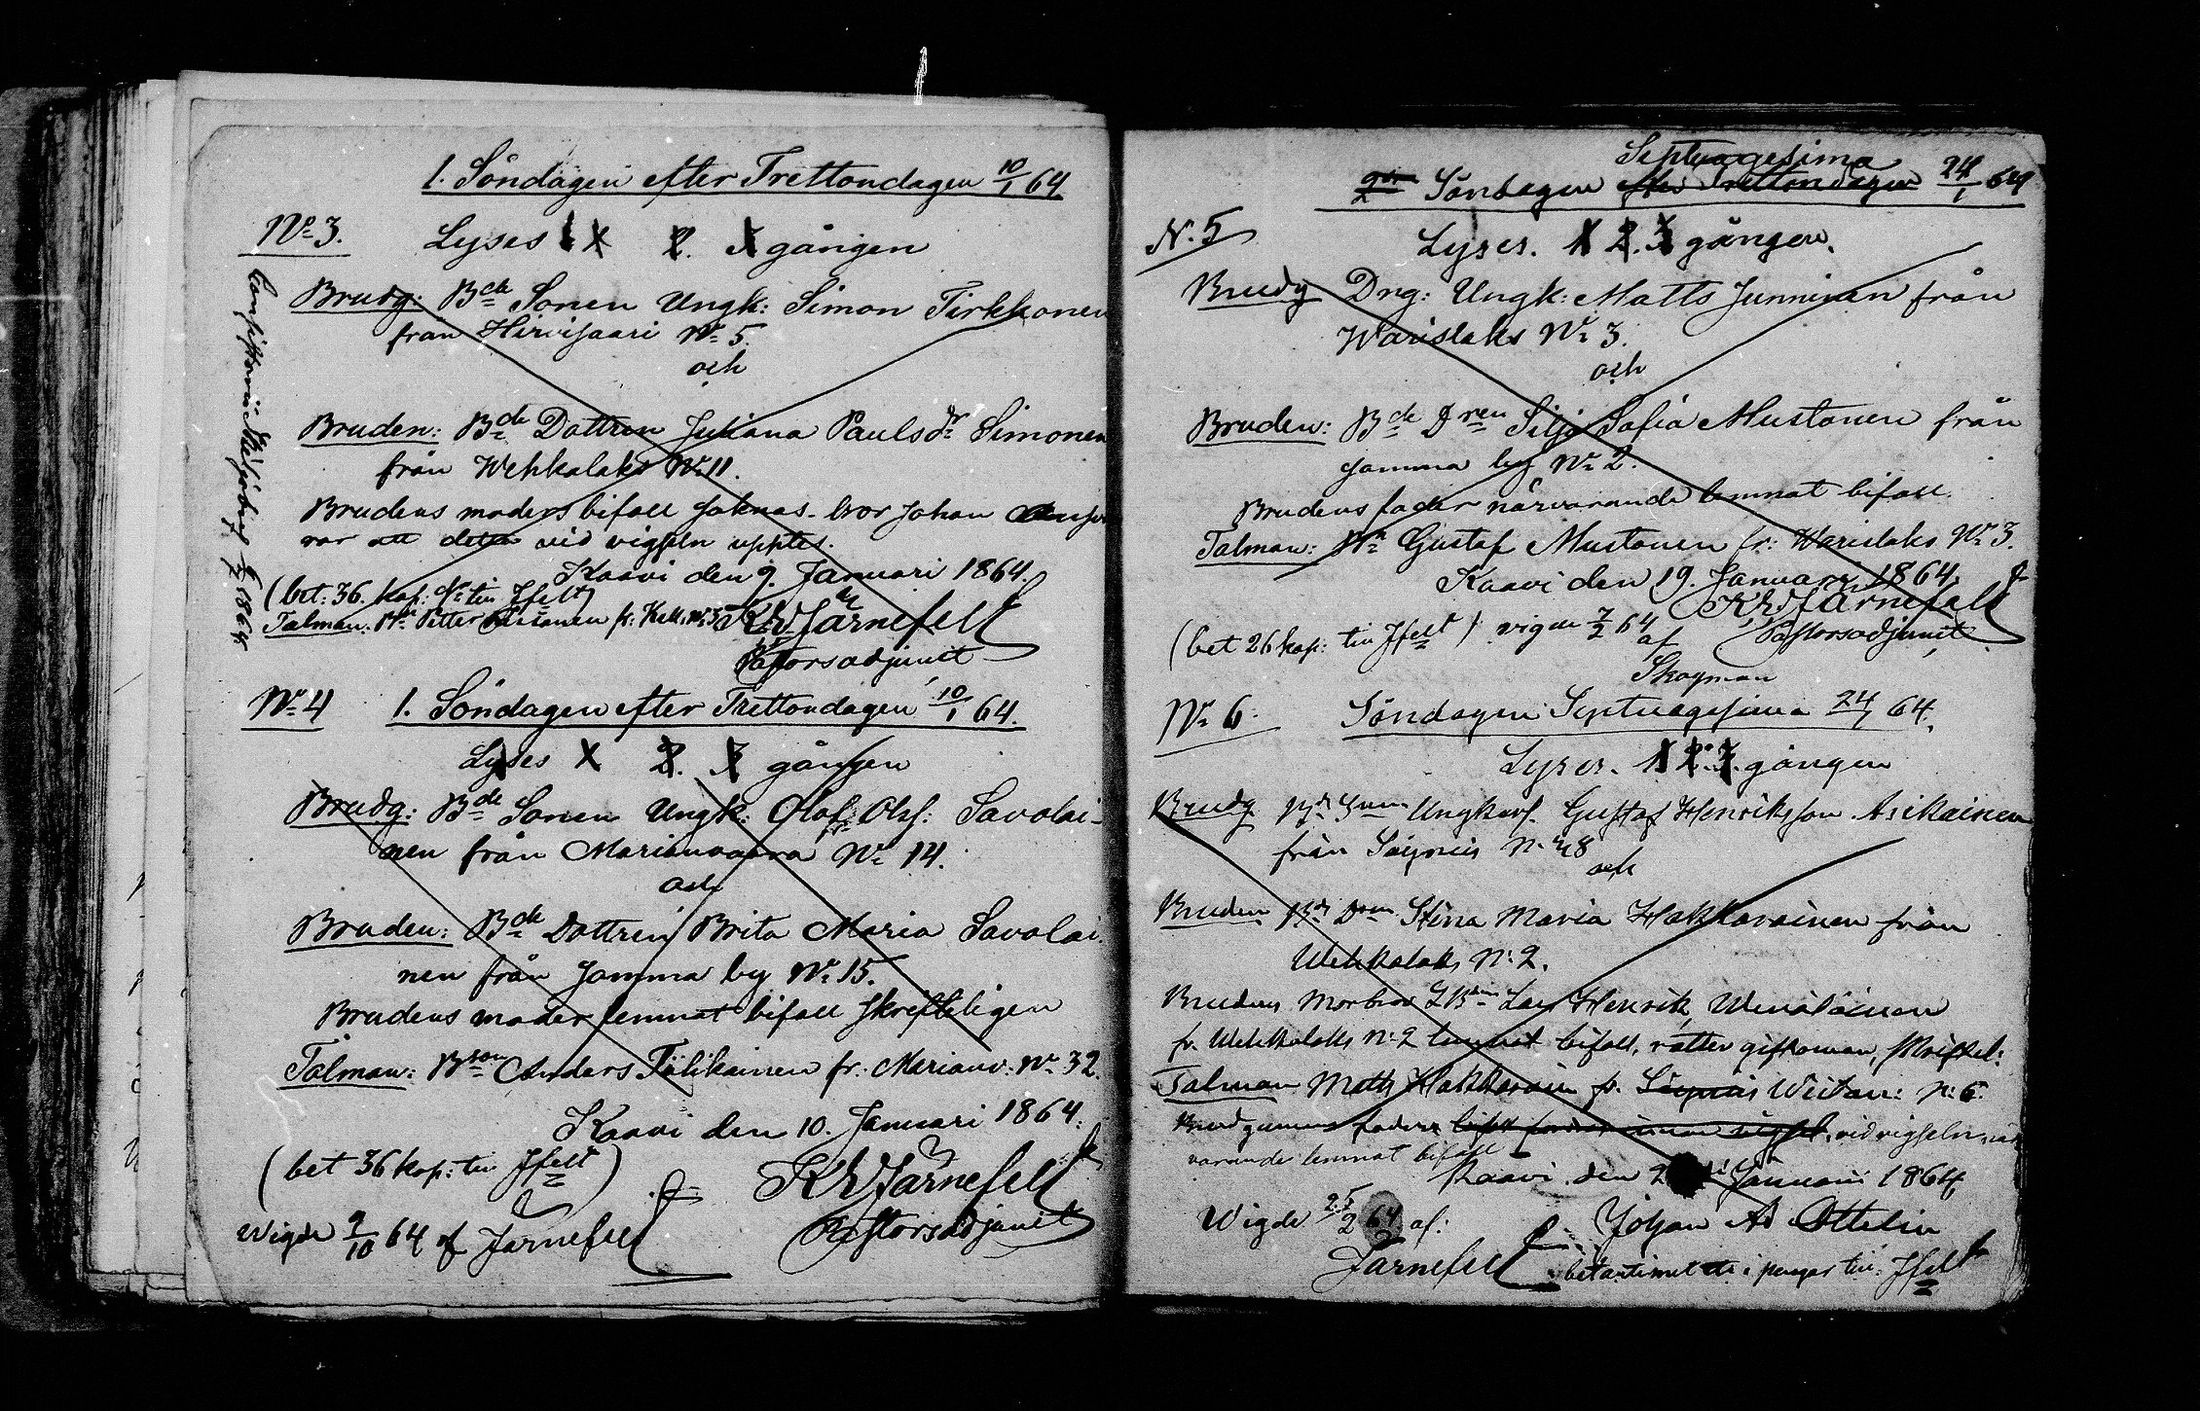 1. Söndagen efter Trettondagen 10/1 64
No 3. Lyses 1 2. 3 gången
Brudg: Bde Sonen Ungk: Simon Tirkkonen
från Hirvisaari No 5.
och
Bruden: Bde Dottren Juliana Paulsdr Simonen
från Wehkalaks No 11.
Brudens moders bifall saknas. bror Johan
var att detta vid vigseln upptes.
Kaavi den 9. Januari 1864.
(bet: 36. kop: till Jfelt)
Talman: Petter fr: No 35 KWJärnefelt
Pastorsadjunct
1864
No 4 1. Söndagen efter Trettondagen 10/1 64.
Lyses 1 2. 3 gången
Brudg: Bde Sonen Ungk: Olof Ols: Savolai-
nen från Marianvaara No 14.
och
Bruden: Bde Dottren Brita Maria Savolai-
nen från samma by No 15.
Brudens moder lemnat bifall skrifteligen
Talman: Bson Anders Fölikainen fr: Marianv: No 32.
Kaavi den 10. Januari 1864.
(bet 36 kop: till Jfelt)
KWJärnefelt
Pastorsadjunct
Wigde 9/10 64 af Järnefelt
Septuagesima
Söndagen efter Trettondagen 24/1 64
N. 5
Lyses. 1 2. 3 gången.
Brudg Dng: Ungk: Matts Junninen från
Warislaks No 3.
och
Bruden: Bde Dren Silja Sofia Mustonen från
samma by No 2.
Brudens fader närvarande lemnat bifall.
Talman: Gustaf Mustonen fr: Warislaks No 3.
Kaavi den 19. Januari 1864.
KWJärnefelt
(bet 26 kop: till Jfelt) vigde 7/2 64 Pastorsadjunct
af
Skogman
No 6. Söndagen Septuagesima 24/1 64.
Lyses. 1 2. 3. gången
Brudg Bde Ungkarl. Gustaf Henriksson Asikainen
från N. 48
och
Bruden Bde Dren Stina Maria Hakkarainen från
Wehkalaks N: 2.
Brudens Morbror Lars Henrik Wenäläinen
fr. Wehkalaks N: 2 lemnat bifall, rätter giftoman, skriftel:
Talman Matts Hakkarain fr. Säyneis N: 6.
Brudgummens faders vid vigseln när-
varande lemnat bifall
Kaavi den 2 Januari 1864
Wigde 25/2 64 af: Johan Ad Ottelin
Järnefelt i penger till Jfelt